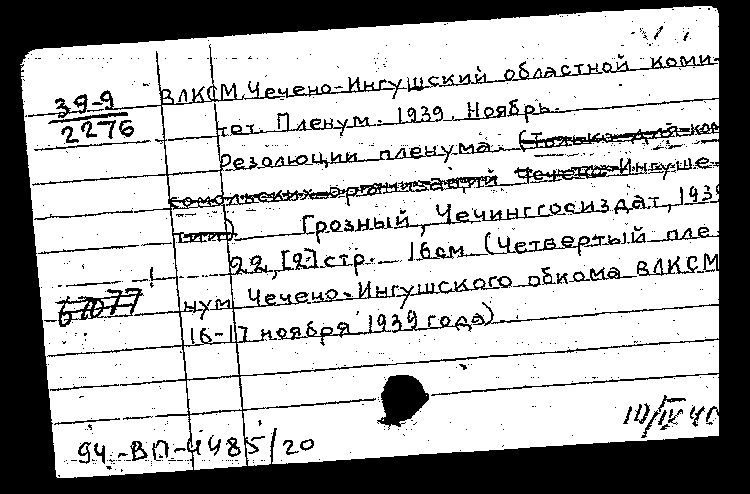 39-9
2276
ВЛКСМ. Чечено-Ингушский областной коми-
тет. Пленум. 1939. Ноябрь.
Резолюции пленума. (Только для ком
сомольских организаций Чечено-Ингуше-
тии). Грозный, Чечингосиздат, 1939
22, [2] стр. 16см (Четвертый пле-
67077 нум Чечено-Ингушского обкома ВЛКСМ
16-17 ноября 1939 года)
94-ВП-4485/20
10/IX 40